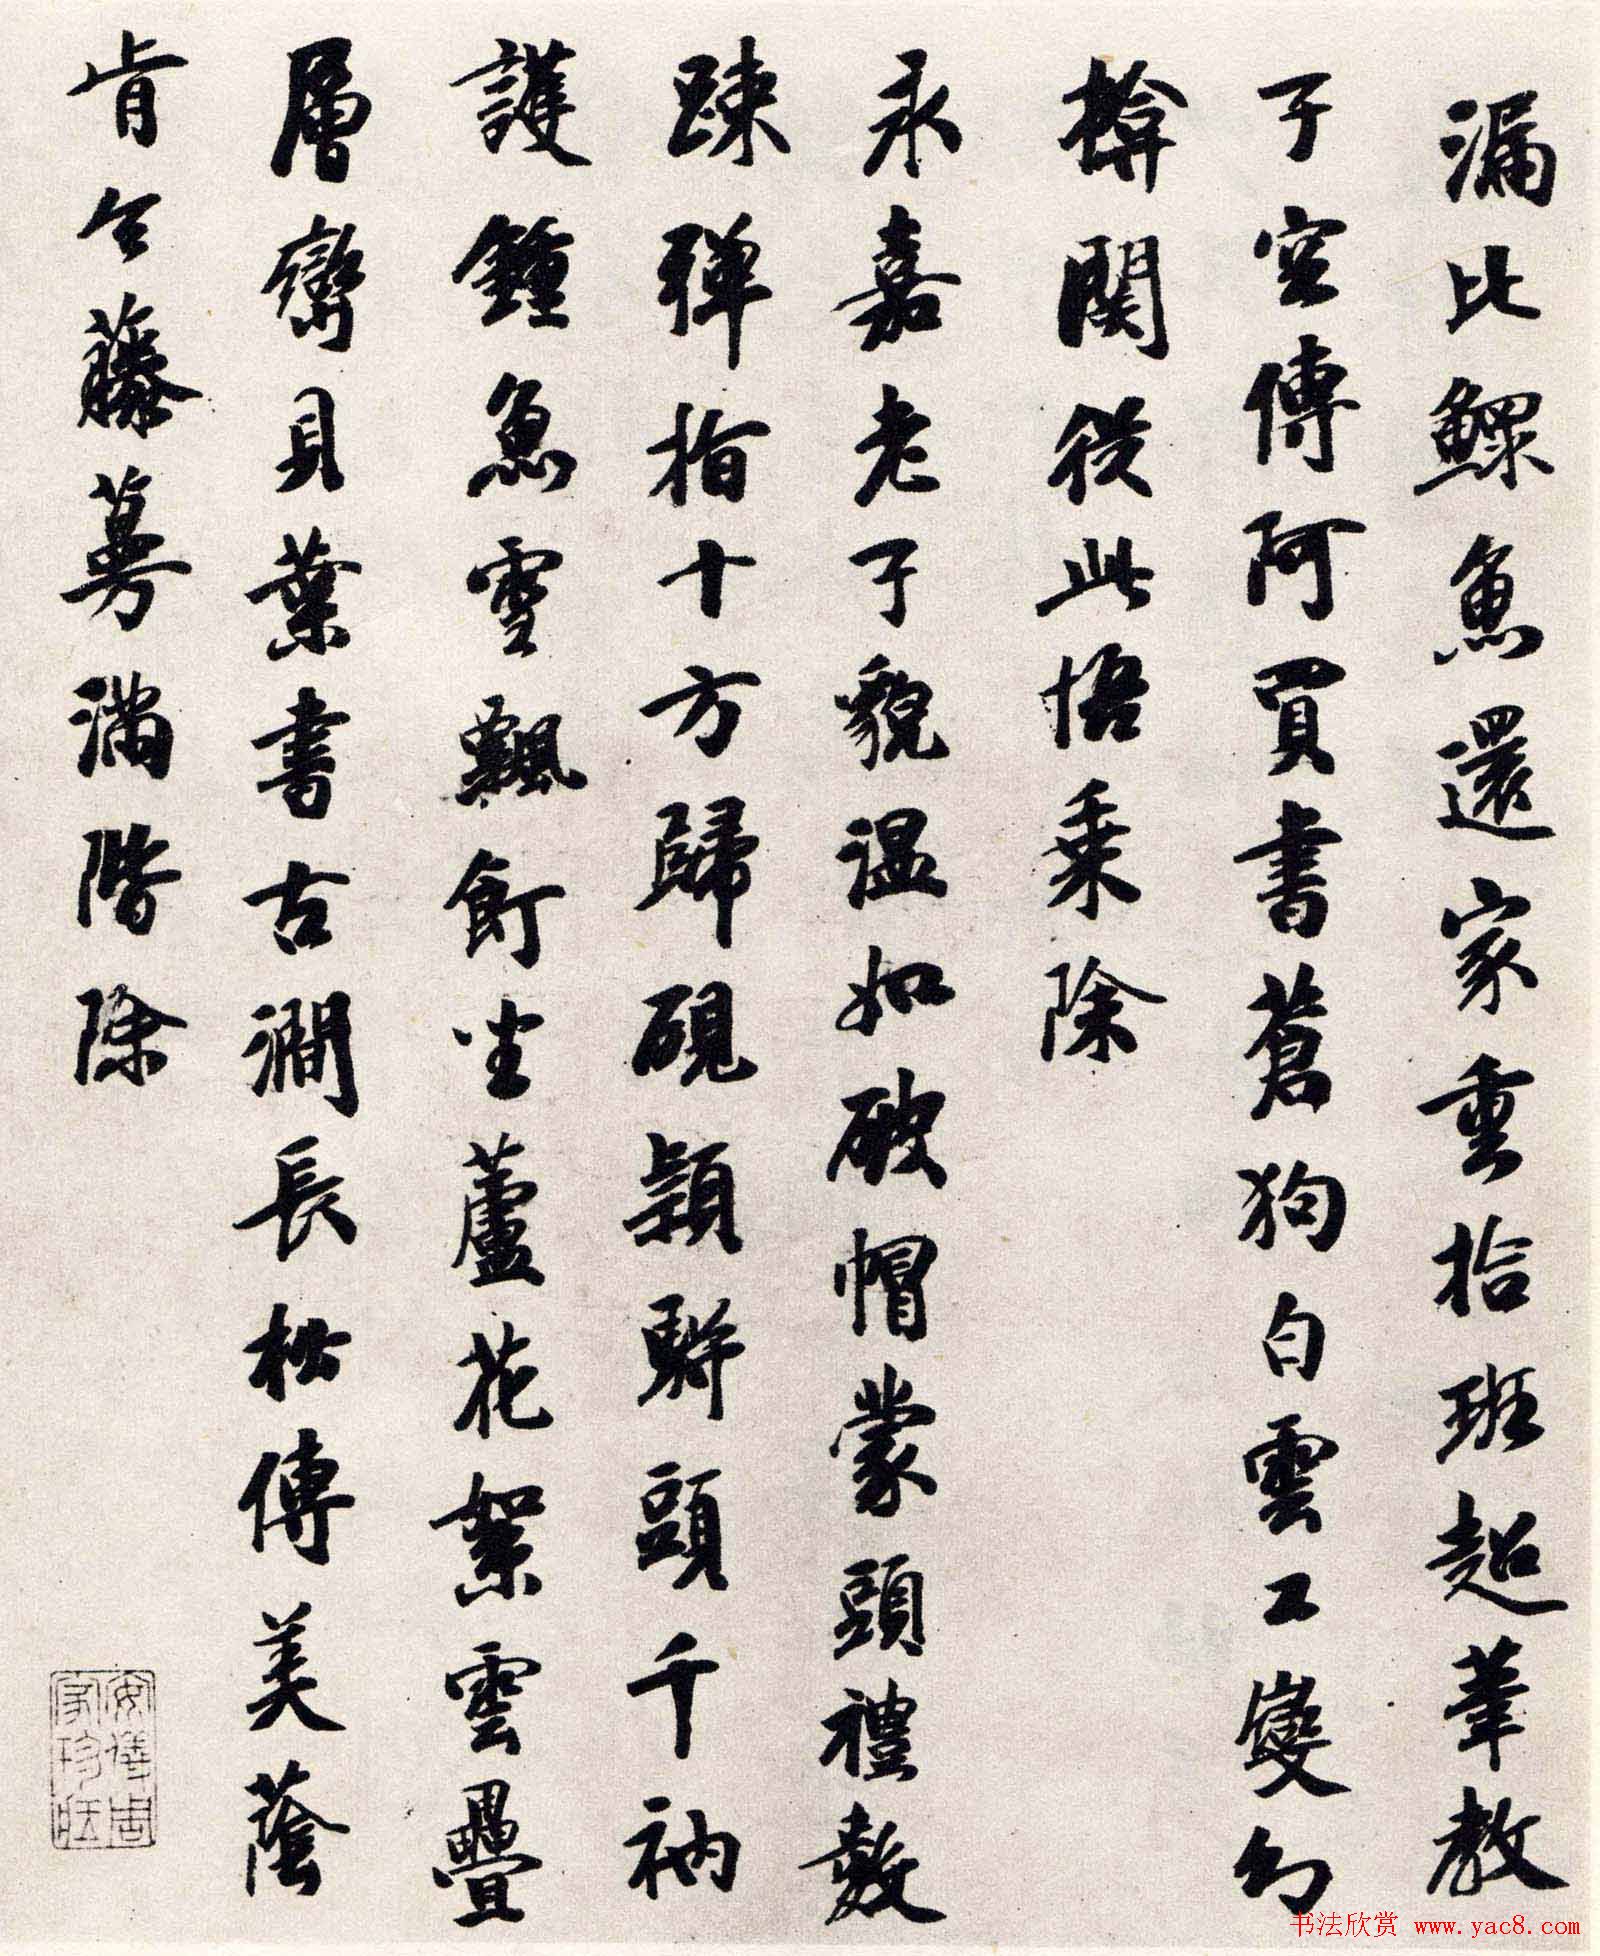 漏比鰥魚還家重拾班超筆教
子空傳阿買書蒼狗白雲工變幻
榜関從此悟乗除
永嘉老子貌温如破帽蒙頭禮數
踈彈指十方歸硯頴駢頭千衲
護鍾魚雪飄飣坐蘆花絮雲疊
層巒貝葉書古澗長松傳美蔭
肯令藤蔓滿階除
书法欣赏 www.yac8.com